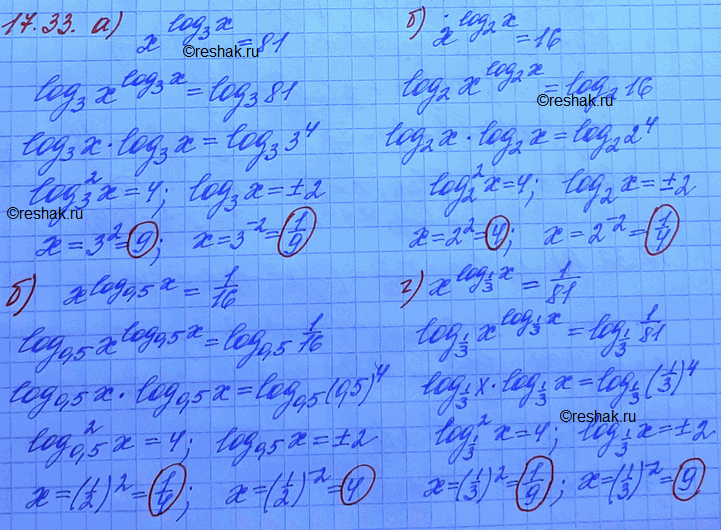 17.33. а) x^(log₃x) = 81
©reshak.ru
log₃ x^(log₃x) = log₃ 81
log₃x · log₃x = log₃ 3⁴
log₃² x = 4; log₃x = ±2
©reshak.ru
x = 3² = 9; x = 3⁻² = 1/9
б) x^(log₂x) = 16
©reshak.ru
log₂ x^(log₂x) = log₂ 16
©reshak.ru
log₂x · log₂x = log₂ 2⁴
log₂² x = 4; log₂x = ±2
x = 2² = 4; x = 2⁻² = 1/4
б) x^(log₀,₅x) = 1/16
log₀,₅ x^(log₀,₅x) = log₀,₅ 1/16
log₀,₅x · log₀,₅x = log₀,₅ (0,5)⁴
log₀,₅² x = 4; log₀,₅x = ±2
x = (1/2)² = 1/4; x = (1/2)⁻² = 4
©reshak.ru
г) x^(log_(1/3) x) = 1/81
log_(1/3) x^(log_(1/3) x) = log_(1/3) 1/81
log_(1/3) x · log_(1/3) x = log_(1/3) (1/3)⁴
©reshak.ru
log²_(1/3) x = 4; log_(1/3) x = ±2
x = (1/3)² = 1/9; x = (1/3)⁻² = 9